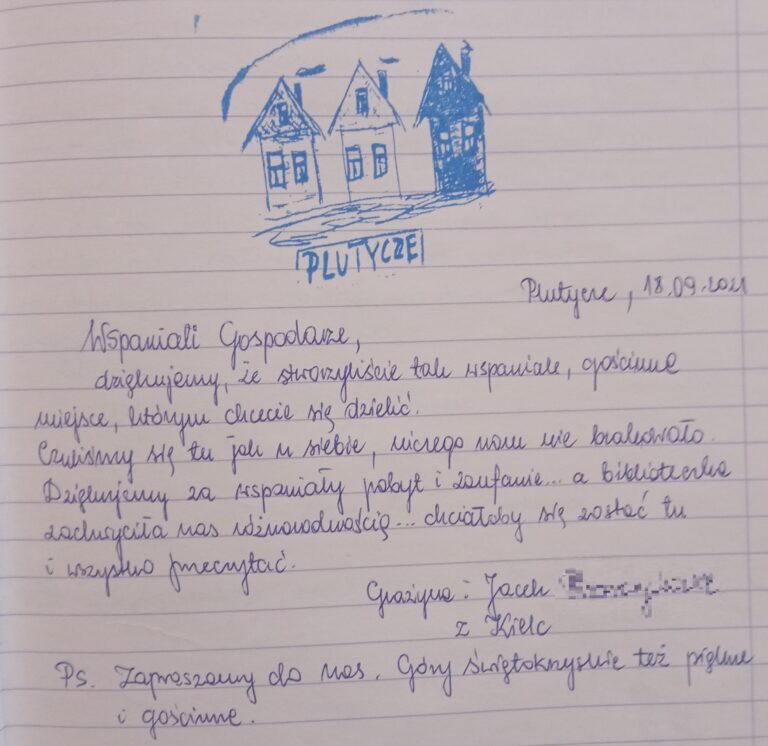 PLUTYCZE
Plutycze, 18.09.2021
Wspaniali Gospodarze,
dziękujemy, że stworzyliście tak wspaniałe, gościnne
miejsce, którym chcecie się dzielić.
Czuliśmy się tu jak u siebie, niczego nam nie brakowało.
Dziękujemy za wspaniały pobyt i zaufanie... a biblioteczka
zachwyciła nas różnorodnością... chciałoby się zostać tu
i wszystko przeczytać.
Grażyna i Jacek
z Kielc
Ps. Zapraszamy do nas. Góry Świętokrzyskie też piękne
i gościnne.